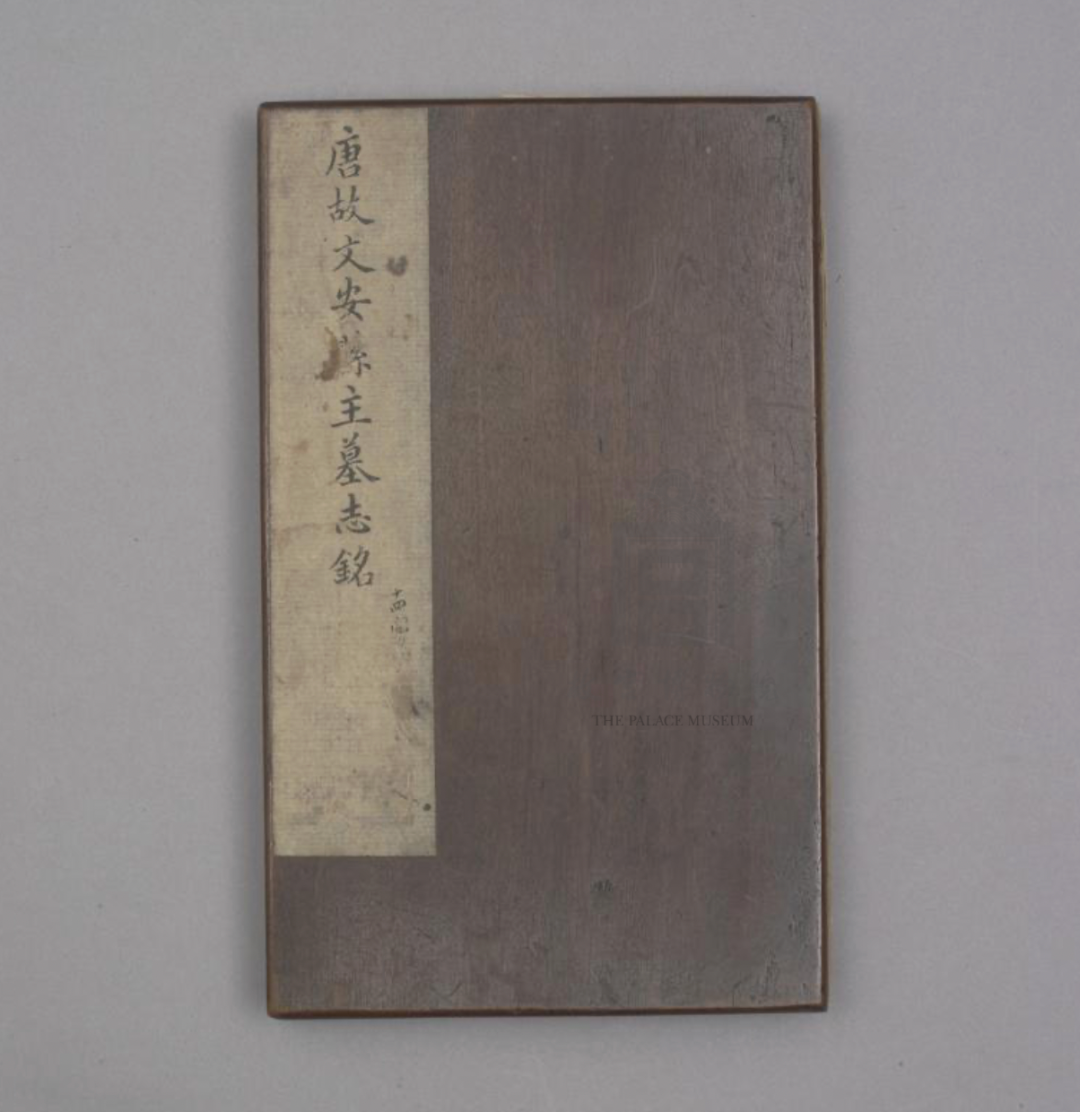 唐故文安縣主墓志銘
十四開
THE PALACE MUSEUM